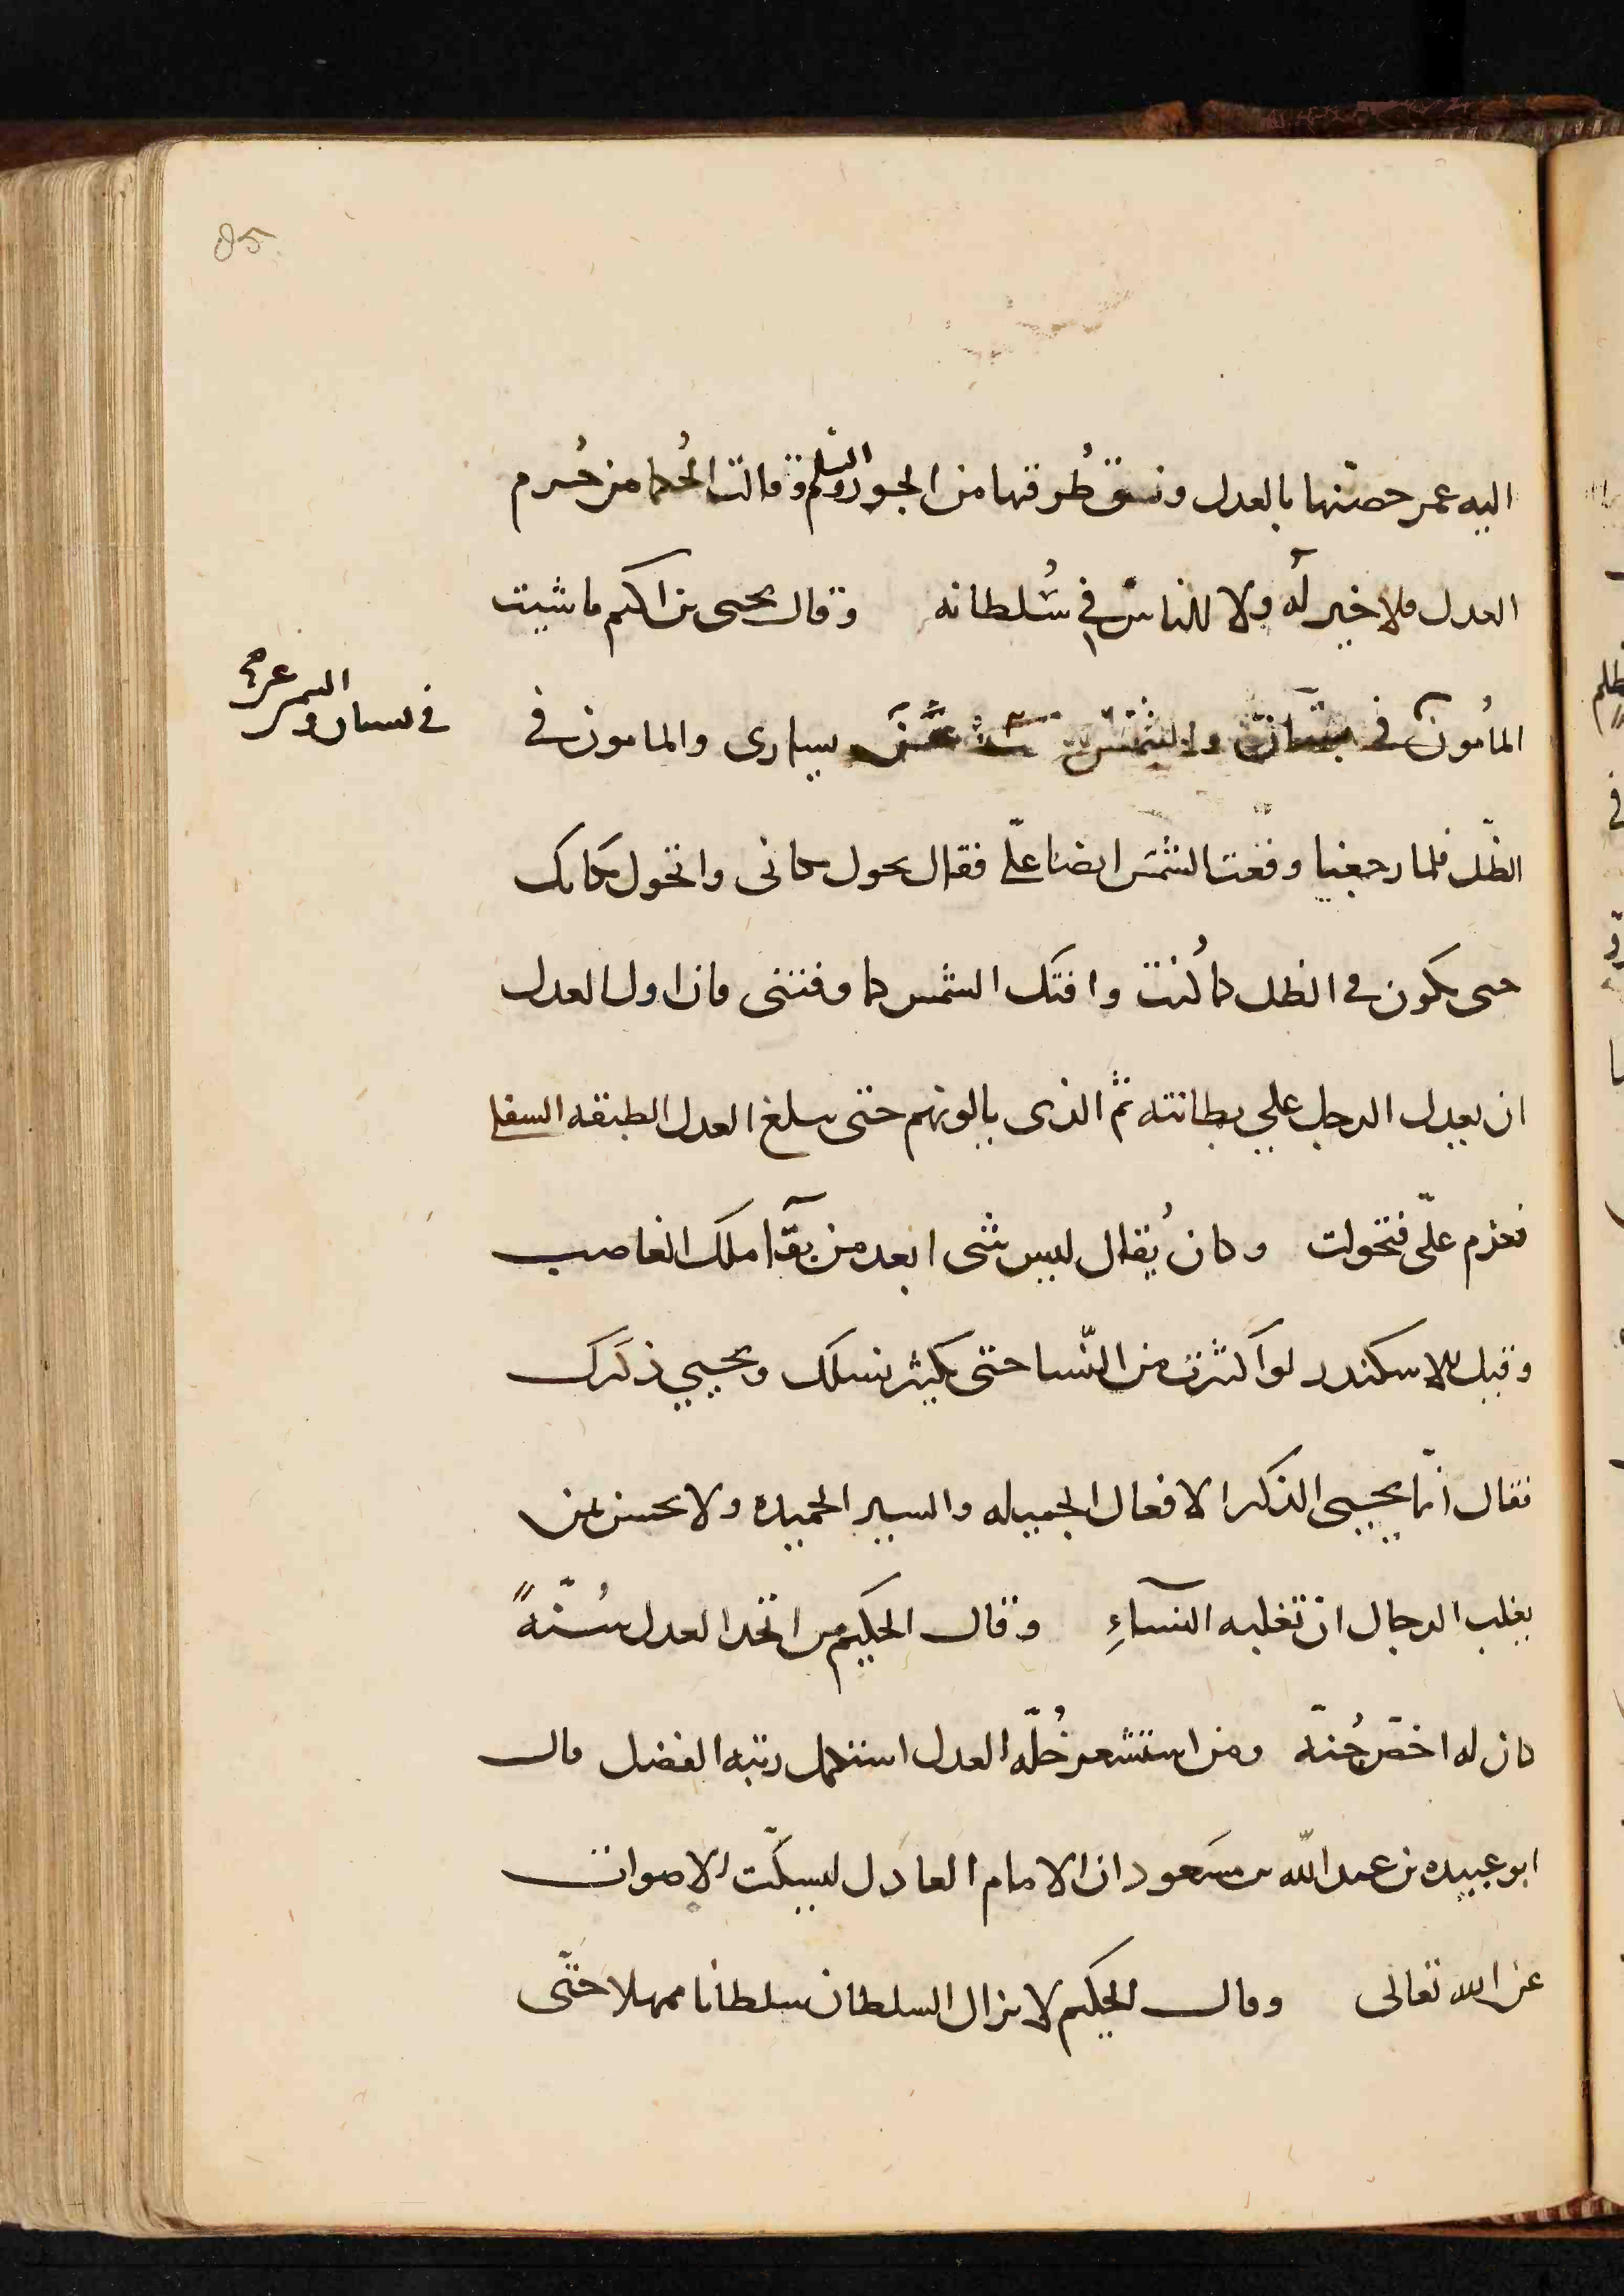 85
اليه عمر حصنها بالعدل ونق طُرقها من الجور والظلم وقالت الحُكما من حُرم
العدل فلا خير له ولا للناس في سُلطانه وقال يحيى بن اكثم ماشيت
المأمون في بستان والشمس عن يسارى والمامون فى
في بستان والشمس عن
الظّل فلما رجعنيا وقعت الشمس ايضا علىّ فقال تحول مكانى واتحول مكانك
حتى تكون في الظل كما كُنت واقيك الشمس كما وقيتنى فان اول العدل
ان يعدل الرجل علي بطانته ثم الذى يالونهم حتى يبلغ العدل الطبقه السفلا
فعزم علىّ فتحولت وكان يُقال ليس شى ابعد من بقآ ملك الغاصب
وقيل للاسكندر لو اكثرت من النّسا حتى يكثر نسلك ويحيي ذكرك
فقال انّما يحيى الذكر الافعال الجميله والسير الحميده ولا يحسن بمن
يغلب الرجال ان تغلبه النسآءِ وقال الحكيم من اتخد العدل سُنّهً
كان له احصن جُنّة ومن استشعر حُلّه العدل استكمل رتبه الفضل قال
ابو عبيده بن عبد الله بن مسَعود ان الامام العادل ليسكّت الاصوات
عن الله تعالى وقال الحكيم لا يزال السلطان سلطانا ممهلا حتّى